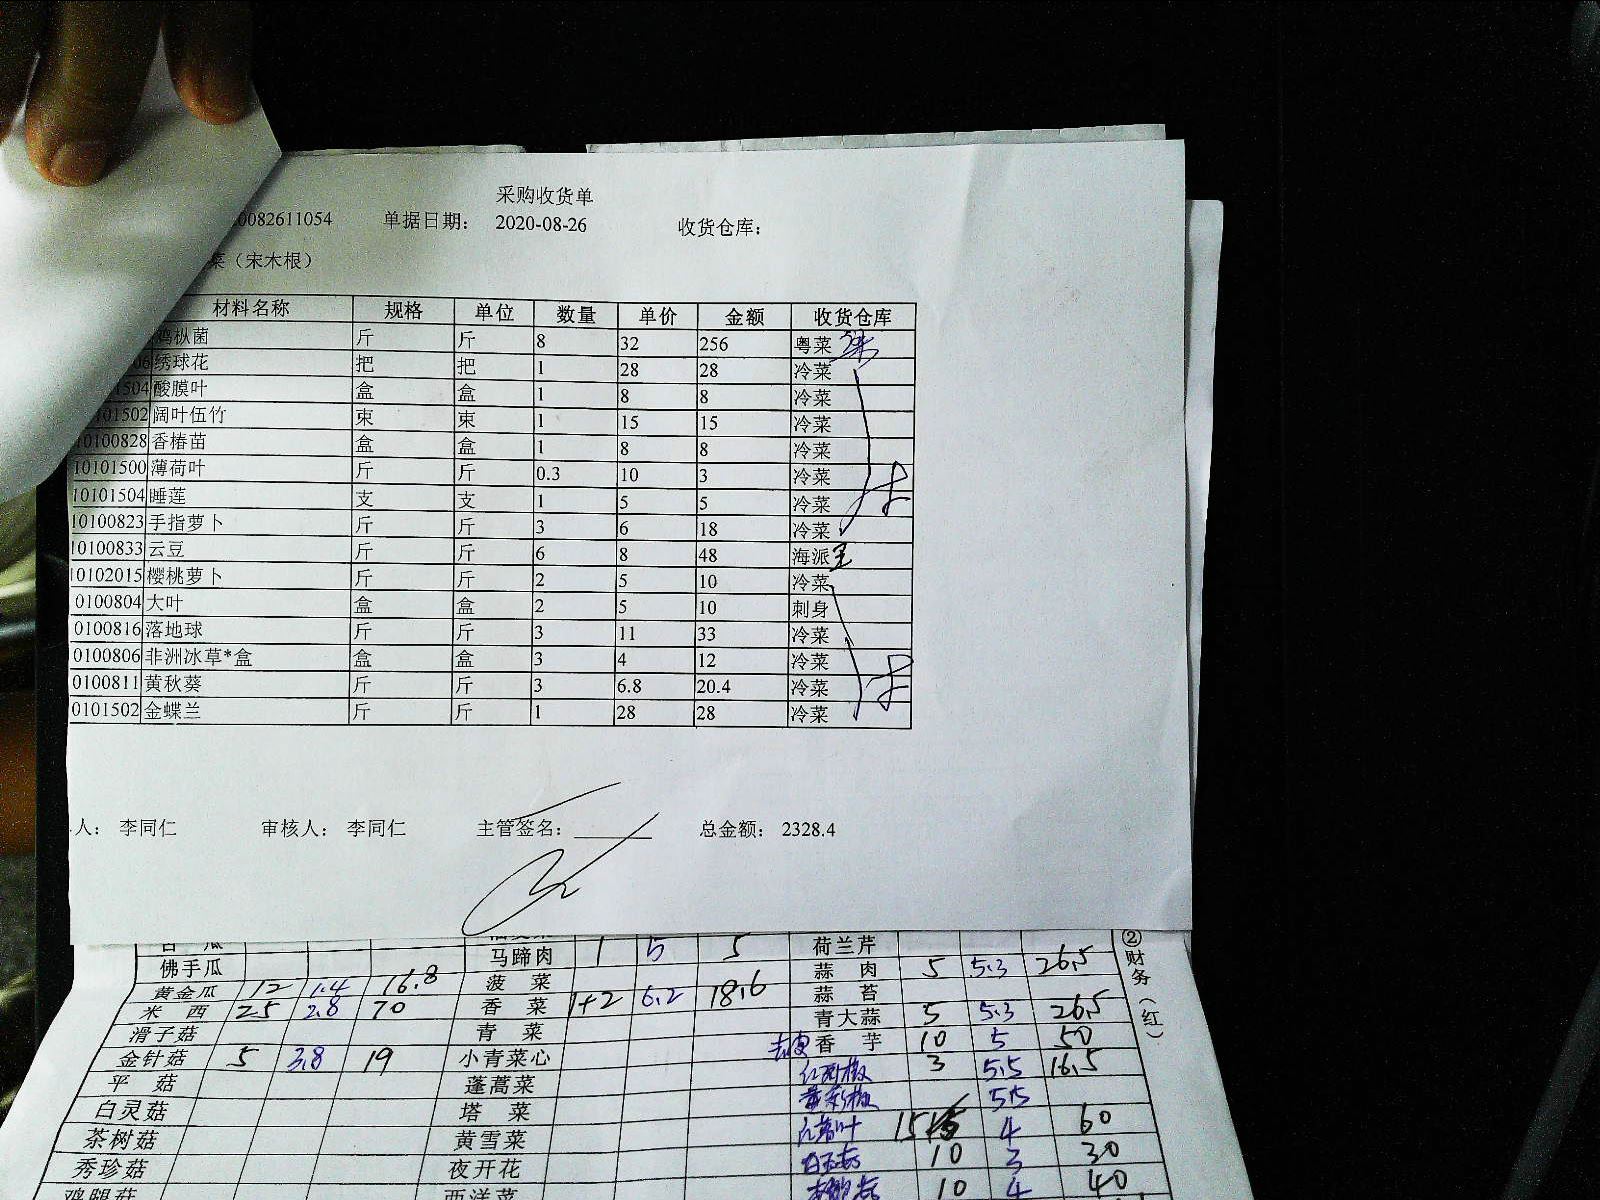 采购收货单
0082611054 单据日期： 2020-08-26 收货仓库：
菜（宋木根）
材料名称 规格 单位 数量 单价 金额 收货仓库
鸡枞菌 斤 斤 8 32 256 粤菜
06 绣球花 把 把 1 28 28 冷菜
1504 酸膜叶 盒 盒 1 8 8 冷菜
101502 阔叶伍竹 束 束 1 15 15 冷菜
10100828 香椿苗 盒 盒 1 8 8 冷菜
10101500 薄荷叶 斤 斤 0.3 10 3 冷菜
10101504 睡莲 支 支 1 5 5 冷菜
10100823 手指萝卜 斤 斤 3 6 18 冷菜
10100833 云豆 斤 斤 6 8 48 海派 王
10102015 樱桃萝卜 斤 斤 2 5 10 冷菜
0100804 大叶 盒 盒 2 5 10 刺身
0100816 落地球 斤 斤 3 11 33 冷菜
0100806 非洲冰草*盒 盒 盒 3 4 12 冷菜
0100811 黄秋葵 斤 斤 3 6.8 20.4 冷菜
0101502 金蝶兰 斤 斤 1 28 28 冷菜
人： 李同仁 审核人： 李同仁 主管签名： 总金额： 2328.4
马蹄肉 1 5 5 荷兰芹
佛手瓜 菠菜 蒜肉 5 5.3 26.5
黄金瓜 12 1.4 16.8 香菜 1+2 6.2 18.6 蒜苔
米西 25 2.8 70 青菜 青大蒜 5 5.3 26.5
滑子菇 小青菜心 去皮 香芋 10 5 50
金针菇 5 3.8 19 蓬蒿菜 3 5.5 16.5
平菇 塔菜 5.5
白灵菇 黄雪菜 15 4 60
茶树菇 夜开花 10 3 30
秀珍菇 西洋菜 10 4 40
鸡腿菇
②财务（红）